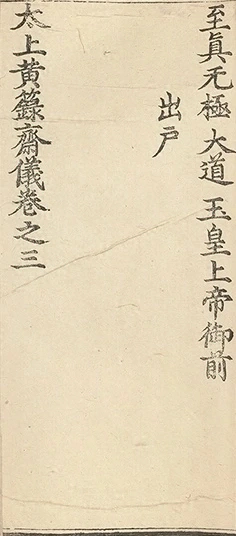 至眞无極大道玉皇上帝御前
出戶
太上黃籙齋儀卷之三